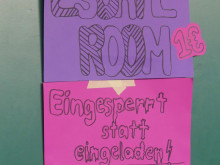 ESCAPE
ROOM
1€
Eingesperrt
statt
eingeladen!